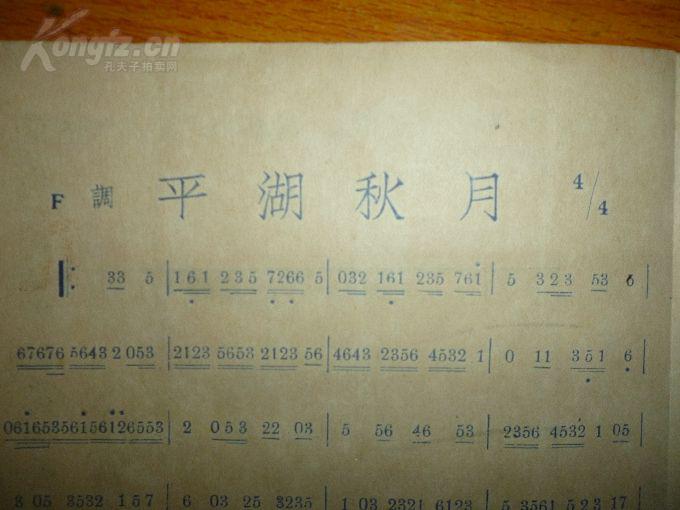 Kongfz.cn
孔夫子拍卖网
F 調 平湖秋月 4/4
33 5 | 161 235 7266 5 | 032 161 235 761 | 5 323 53 6 |
67676 5643 2 053 | 2123 5653 2123 56 | 4643 2356 4532 1 | 0 11 351 6 |
06165356156126553 | 2 053 22 03 | 5 56 46 53 | 2356 4532 1 05 |
3 05 3532 157 | 6 03 25 3235 | 1 03 2321 6123 | 5 3561 523 17